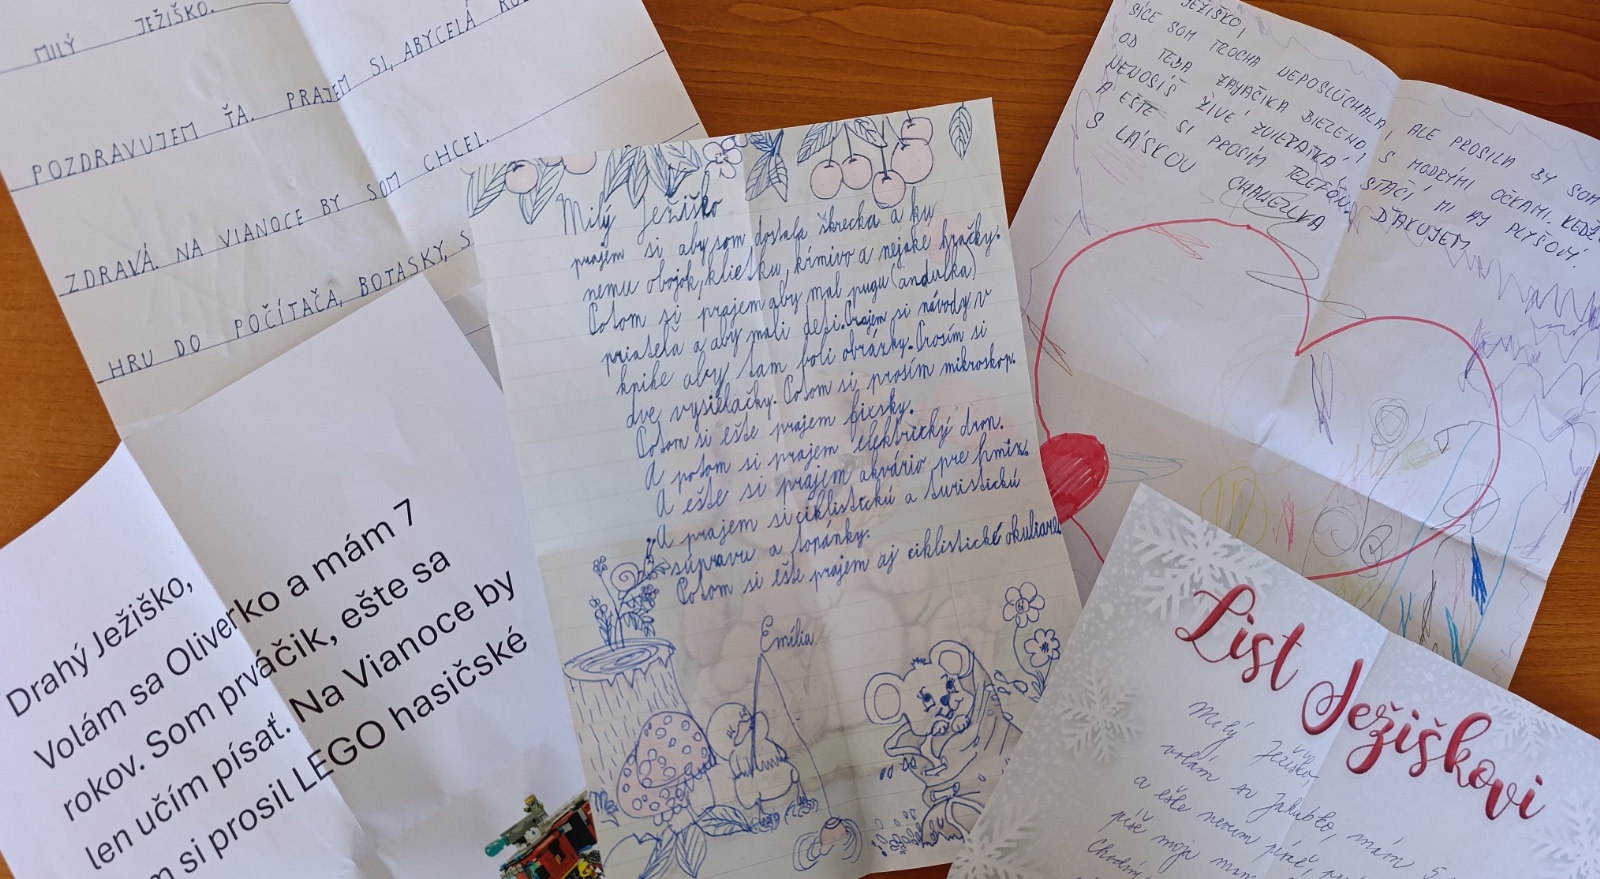 MILÝ JEŽIŠKO.
POZDRAVUJEM ŤA. PRAJEM SI, ABY CELÁ
ZDRAVÁ. NA VIANOCE BY SOM CHCEL.
HRU DO POČÍTAČA, BOTASKY, S
Drahý Ježiško,
Volám sa Oliverko a mám 7
rokov. Som prváčik, ešte sa
len učím písať. Na Vianoce by
m si prosil LEGO hasičské
Milý Ježiško
prajem si aby som dostala škrečka a ku
nemu obojok, klietku, krmivo a nejake hračky.
Potom si prajem aby mal pugu (andulka)
priateľa a aby mali deti. Prajem si návody v
knihe aby tam boli obrázky. Prosím si
dve vysielačky. Potom si prosím mikroskop.
Potom si ešte prajem fixsky.
A potom si prajem elektrický dron.
A ešte si prajem akvário pre hmiz.
A prajem si ciklistickú a turistickú
súpravu a topánky.
Potom si ešte prajem aj ciklistické okuliare
Emília
JEŽIŠKO,
SÍCE SOM TROCHA NEPOSLÚCHALA, ALE PROSILA BY SOM
OD TEBA ZAJAČIKA BIELEHO, S MODRÝMI OČKAMI. KEĎŽE
NENOSÍŠ ŽIVÉ ZVIERATKÁ, STAČÍ MI AJ PLYŠOVÝ.
A EŠTE SI PROSÍM TELEFÓN. ĎAKUJEM
S LÁSKOU
List Ježiškovi
Milý Ježiško
volám sa Jakubko, mám 5
a ešte neviem písať,
píše moja
Chodím